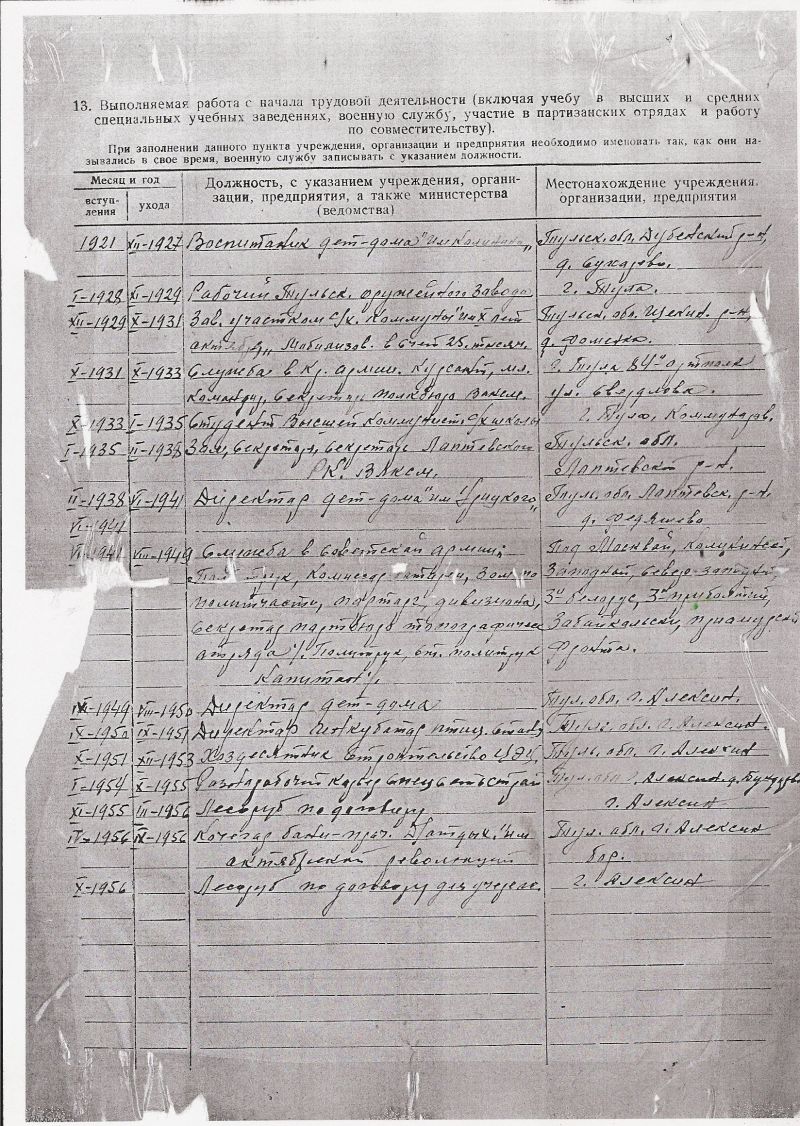 13. Выполняемая работа с начала трудовой деятельности (включая учебу в высших и средних
специальных учебных заведениях, военную службу, участие в партизанских отрядах и работу
по совместительству).
При заполнении данного пункта учреждения, организации и предприятия необходимо именовать так, как они на-
зывались в свое время, военную службу записывать с указанием должности.
Месяц и год
вступ-
ления
ухода
Должность, с указанием учреждения, органи-
зации, предприятия, а также министерства
(ведомства)
Местонахождение учреждения,
организации, предприятия
1921 XII-1927 Воспитаник дет-дома "им Калинина" Тульск. обл. Дубенский р-н,
д. Сухарево.
I-1928 XII-1929 Рабочий Тульск. оружейного завода г. Тула.
XII-1929 X-1931 Зав. участком с/х. Коммуны "им лет Тульск. обл. Щекин. р-н,
октября" Мобилизов. в счет 25. тысяч. д.
X-1931 X-1933 Служба в Кр. армии. Курсант, мл. г. Тула 84го артполк
командир, Секретарь полкбюро Влксм. ул. Свердлова.
X-1933 I-1935 Студент Высшей Коммунист. с/х школы г. Тула,
I-1935 II-1938 Зам, секретаря, секретарь Лаптевского Тульск. обл.
РК. ВЛКСМ. Лаптевский р-н.
II-1938 VI-1941 Директор дет-дома "им Урицкого" Тул. обл. Лаптевск. р-н.
VI-1941 д. Федяшево
VI-1941 VIII-1949 Служба в Советской армии; Под Москвой, Калининской,
Полит рук, Комиссар батареи, Зам по Западной, Северо-западн,
политчасти, парторг дивизиона, 3й белорус, 3й прибалтий,
Секретарь партбюро топографическ Забайкальский, приамурский
отряда /. Политрук, ст. политрук фронта.
Капитан /.
IX-1949 VIII-1950 Директор дет-дома Тул. обл. г. Алексин.
IX-1950 IX-1951 Директор Инкубатор птиц. станц Тульс. обл. г. Алексин.
X-1951 X-1953 Хоздесятник строительство ЦЭЦ, Туль. обл. г. Алексин
I-1954 X-1955 Разнорабочий карьер Тул. обл г. Алексин д.
XI-1955 III-1956 Лесоруб по договору г. Алексин
IV-1956 IX-1956 Кочегар бани-прач. Д/отдых. "им Тул. обл. г. Алексин
октябрьской революции бор.
X-1956 Лесоруб по договору для г. Алексин